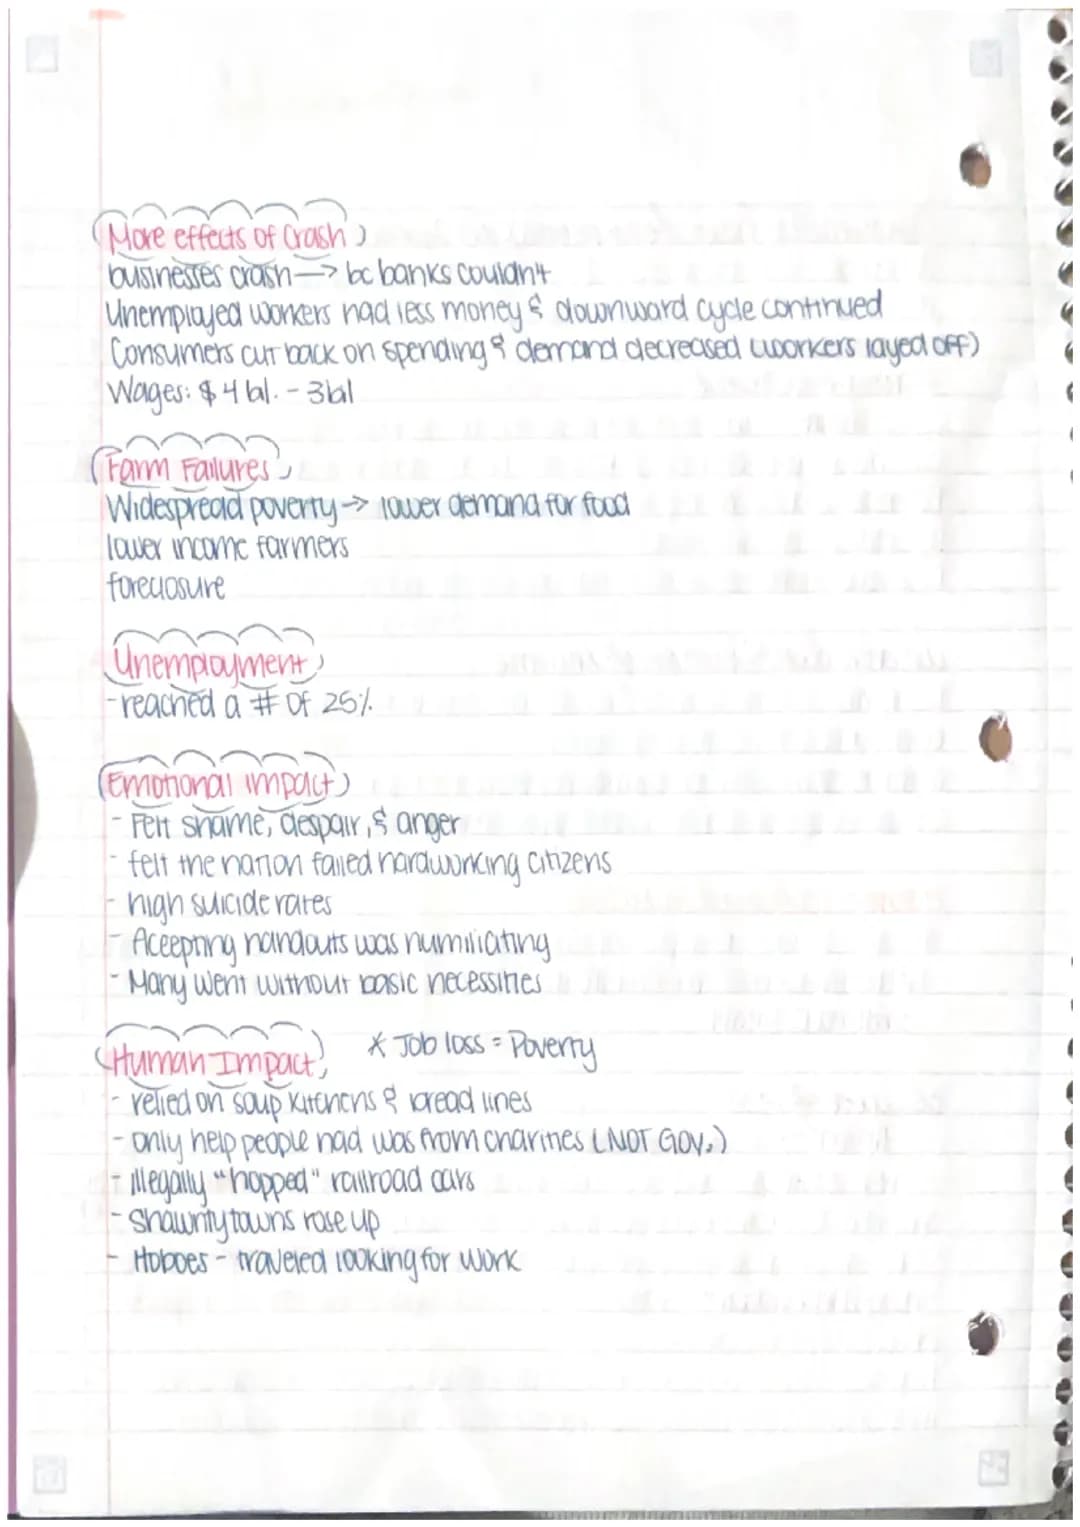 More effects of Crash
businesses crash —> bc banks couldn't
Unemployed workers had less money & downward cycle continued
Consumers cut back on spending & demand decreased (workers layed off)
Wages: $4 bil. - 3bil
Farm Failures
Widespread poverty -> lower demand for food
lower income farmers
foreclosure
Unemployment
- reached a # of 25%
Emotional impact
- Felt shame, despair, & anger
- felt the nation failed hardworking citizens
- high suicide rates
- Aceepting handouts was humiliating
- Many went without basic necessities
Human Impact * Job loss = Poverty
- relied on soup kitchens & bread lines
- only help people had was from charities (NOT GOV.)
- illegally "hopped" railroad cars
- Shawnty towns rose up
- Hoboes - traveled looking for work